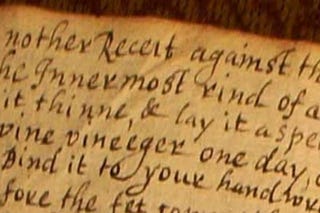 nother Receit against th
he Innermost rind of a
it thinne, & lay it aspe
vine vineeger one day,
Bind it to your hand wr
fore the fet